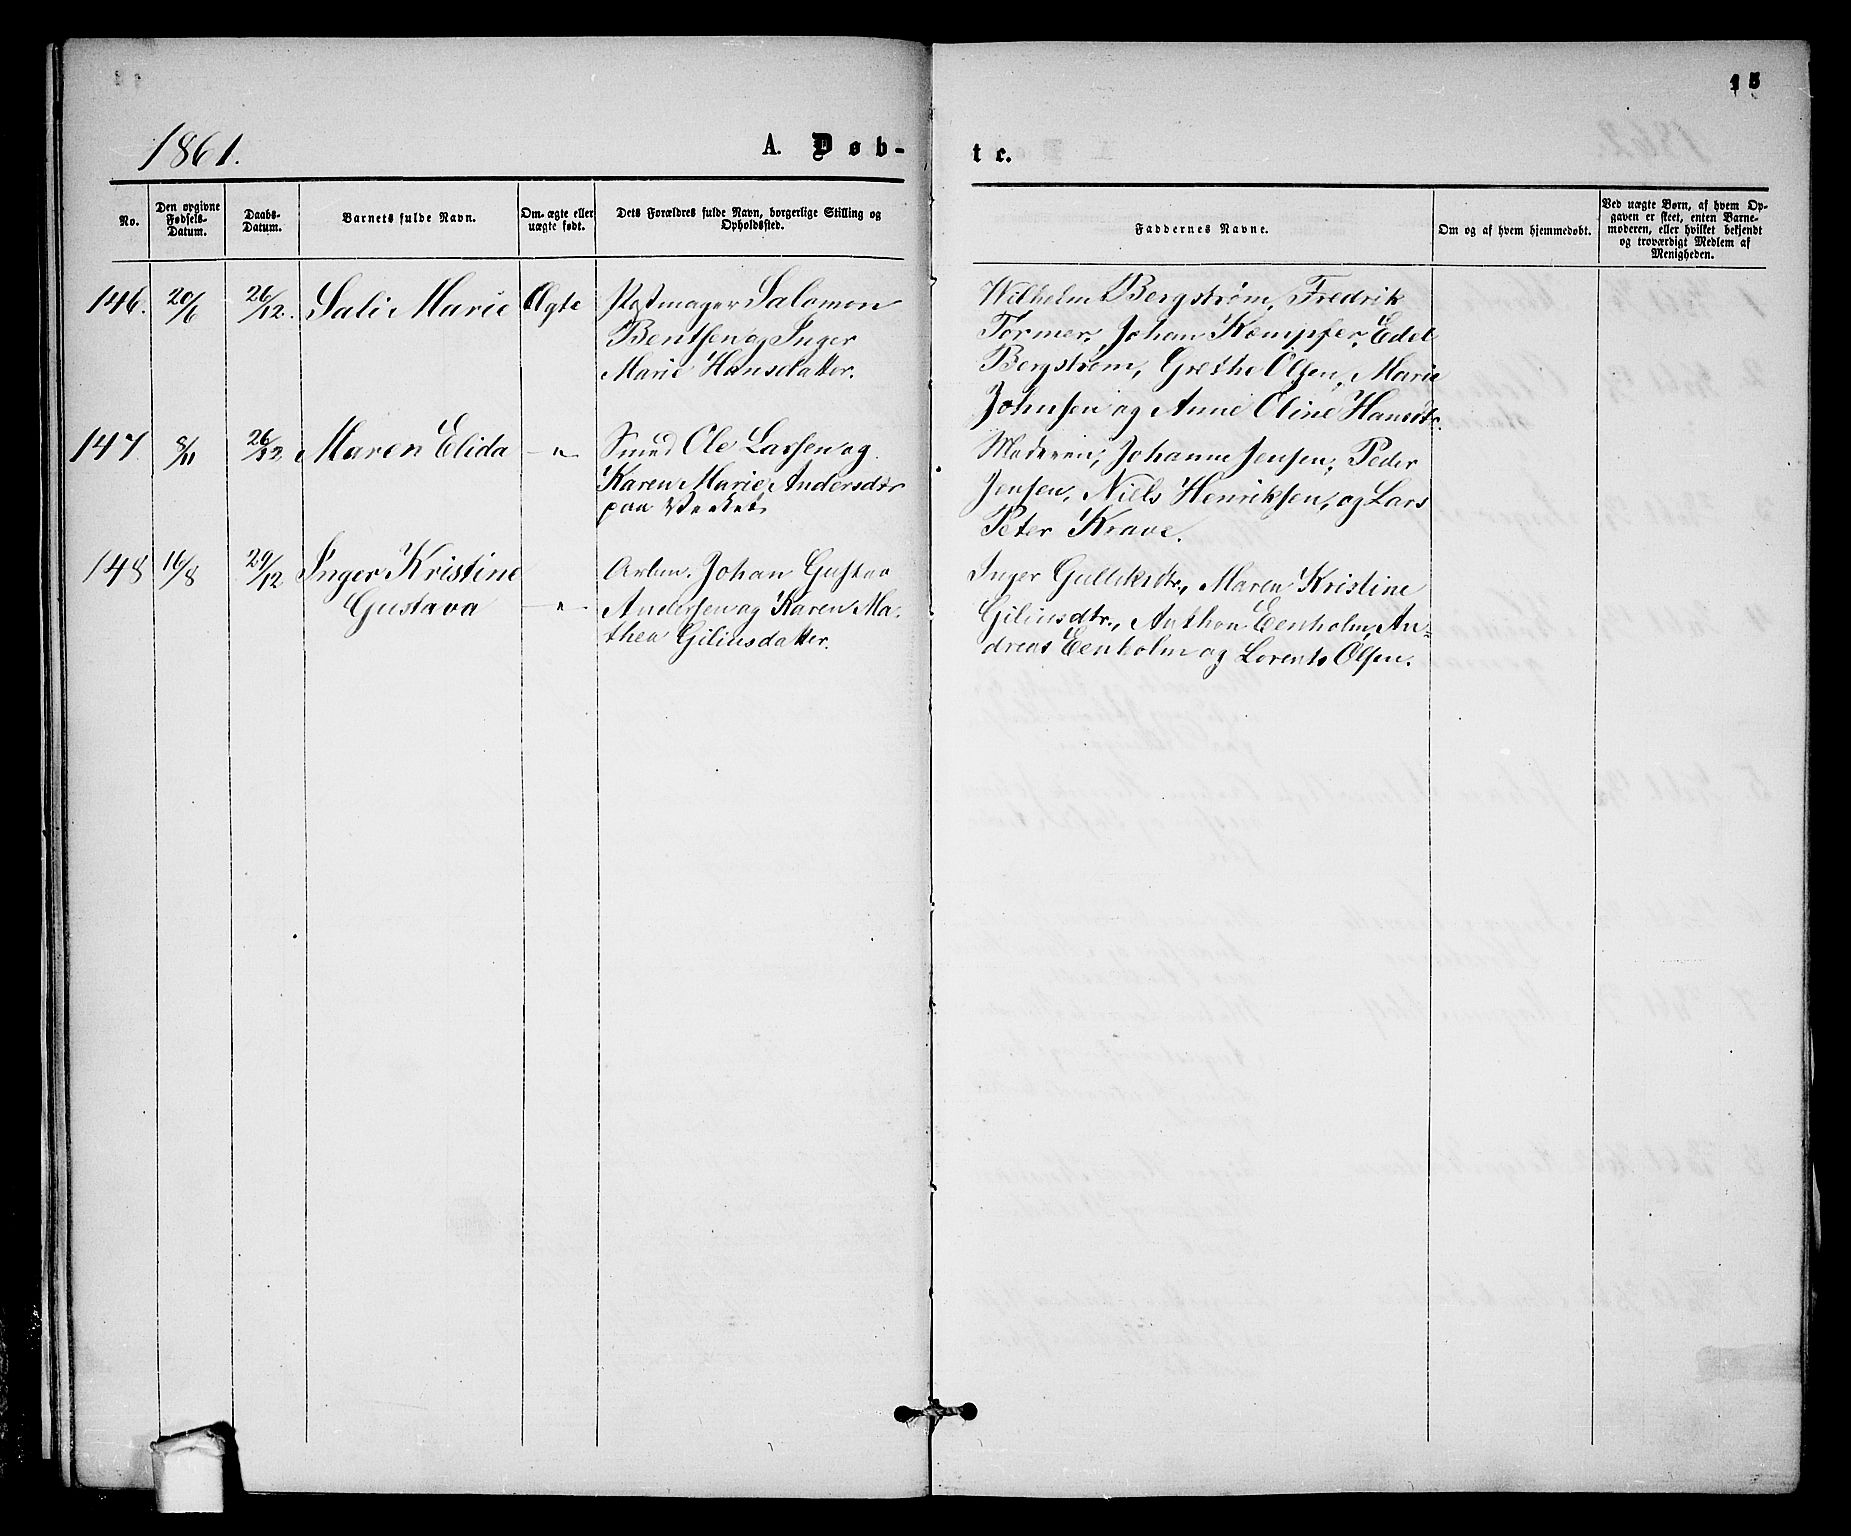 15
1861.
A. Døb-
te.
No.
Den opgivne Fødsels-Datum.
Daabs-Datum.
Barnets fulde Navn.
Om ægte eller uægte født.
Dets Forældres fulde Navn, borgerlige Stilling og Opholdssted.
Faddernes Navne.
Om og af hvem hjemmedøbt.
Ved uægte Børn, af hvem Op-
gaven er skeet, enten Barne-
moderen, eller hvilket bekjendt
og troværdigt Medlem af
Menigheden.
146. 20/6 26/12. Sali Marie Ægte
Salomon
Bentsen og Inger
Marie Hansdatter.
Wilhelm Bergstrøm, Fredrik
Tørmer, Johan Kæmpfer, Edel
Bergstrøm, Grethe Olsen, Marie
Johnsen og Anne Oline Hansdtr.
147. 8/11 26/12 Maren Elida —"—
Smed Ole Larsen og
Karen Marie Andersdtr
paa Værket.
Moderen, Johanne Jensen, Peder
Jensen, Niels Henriksen, og Lars
Peter Krave.
148 16/8 29/12 Inger Kristine
Gustava —"—
Arbm. Johan Gustav
Andersen og Karen Ma-
thea Gilinsdatter.
Inger Gulliksdtr., Maren Kristine
Gilinsdtr., Anthon Eenholm, An-
dreas Eenholm og Lorents Olsen.